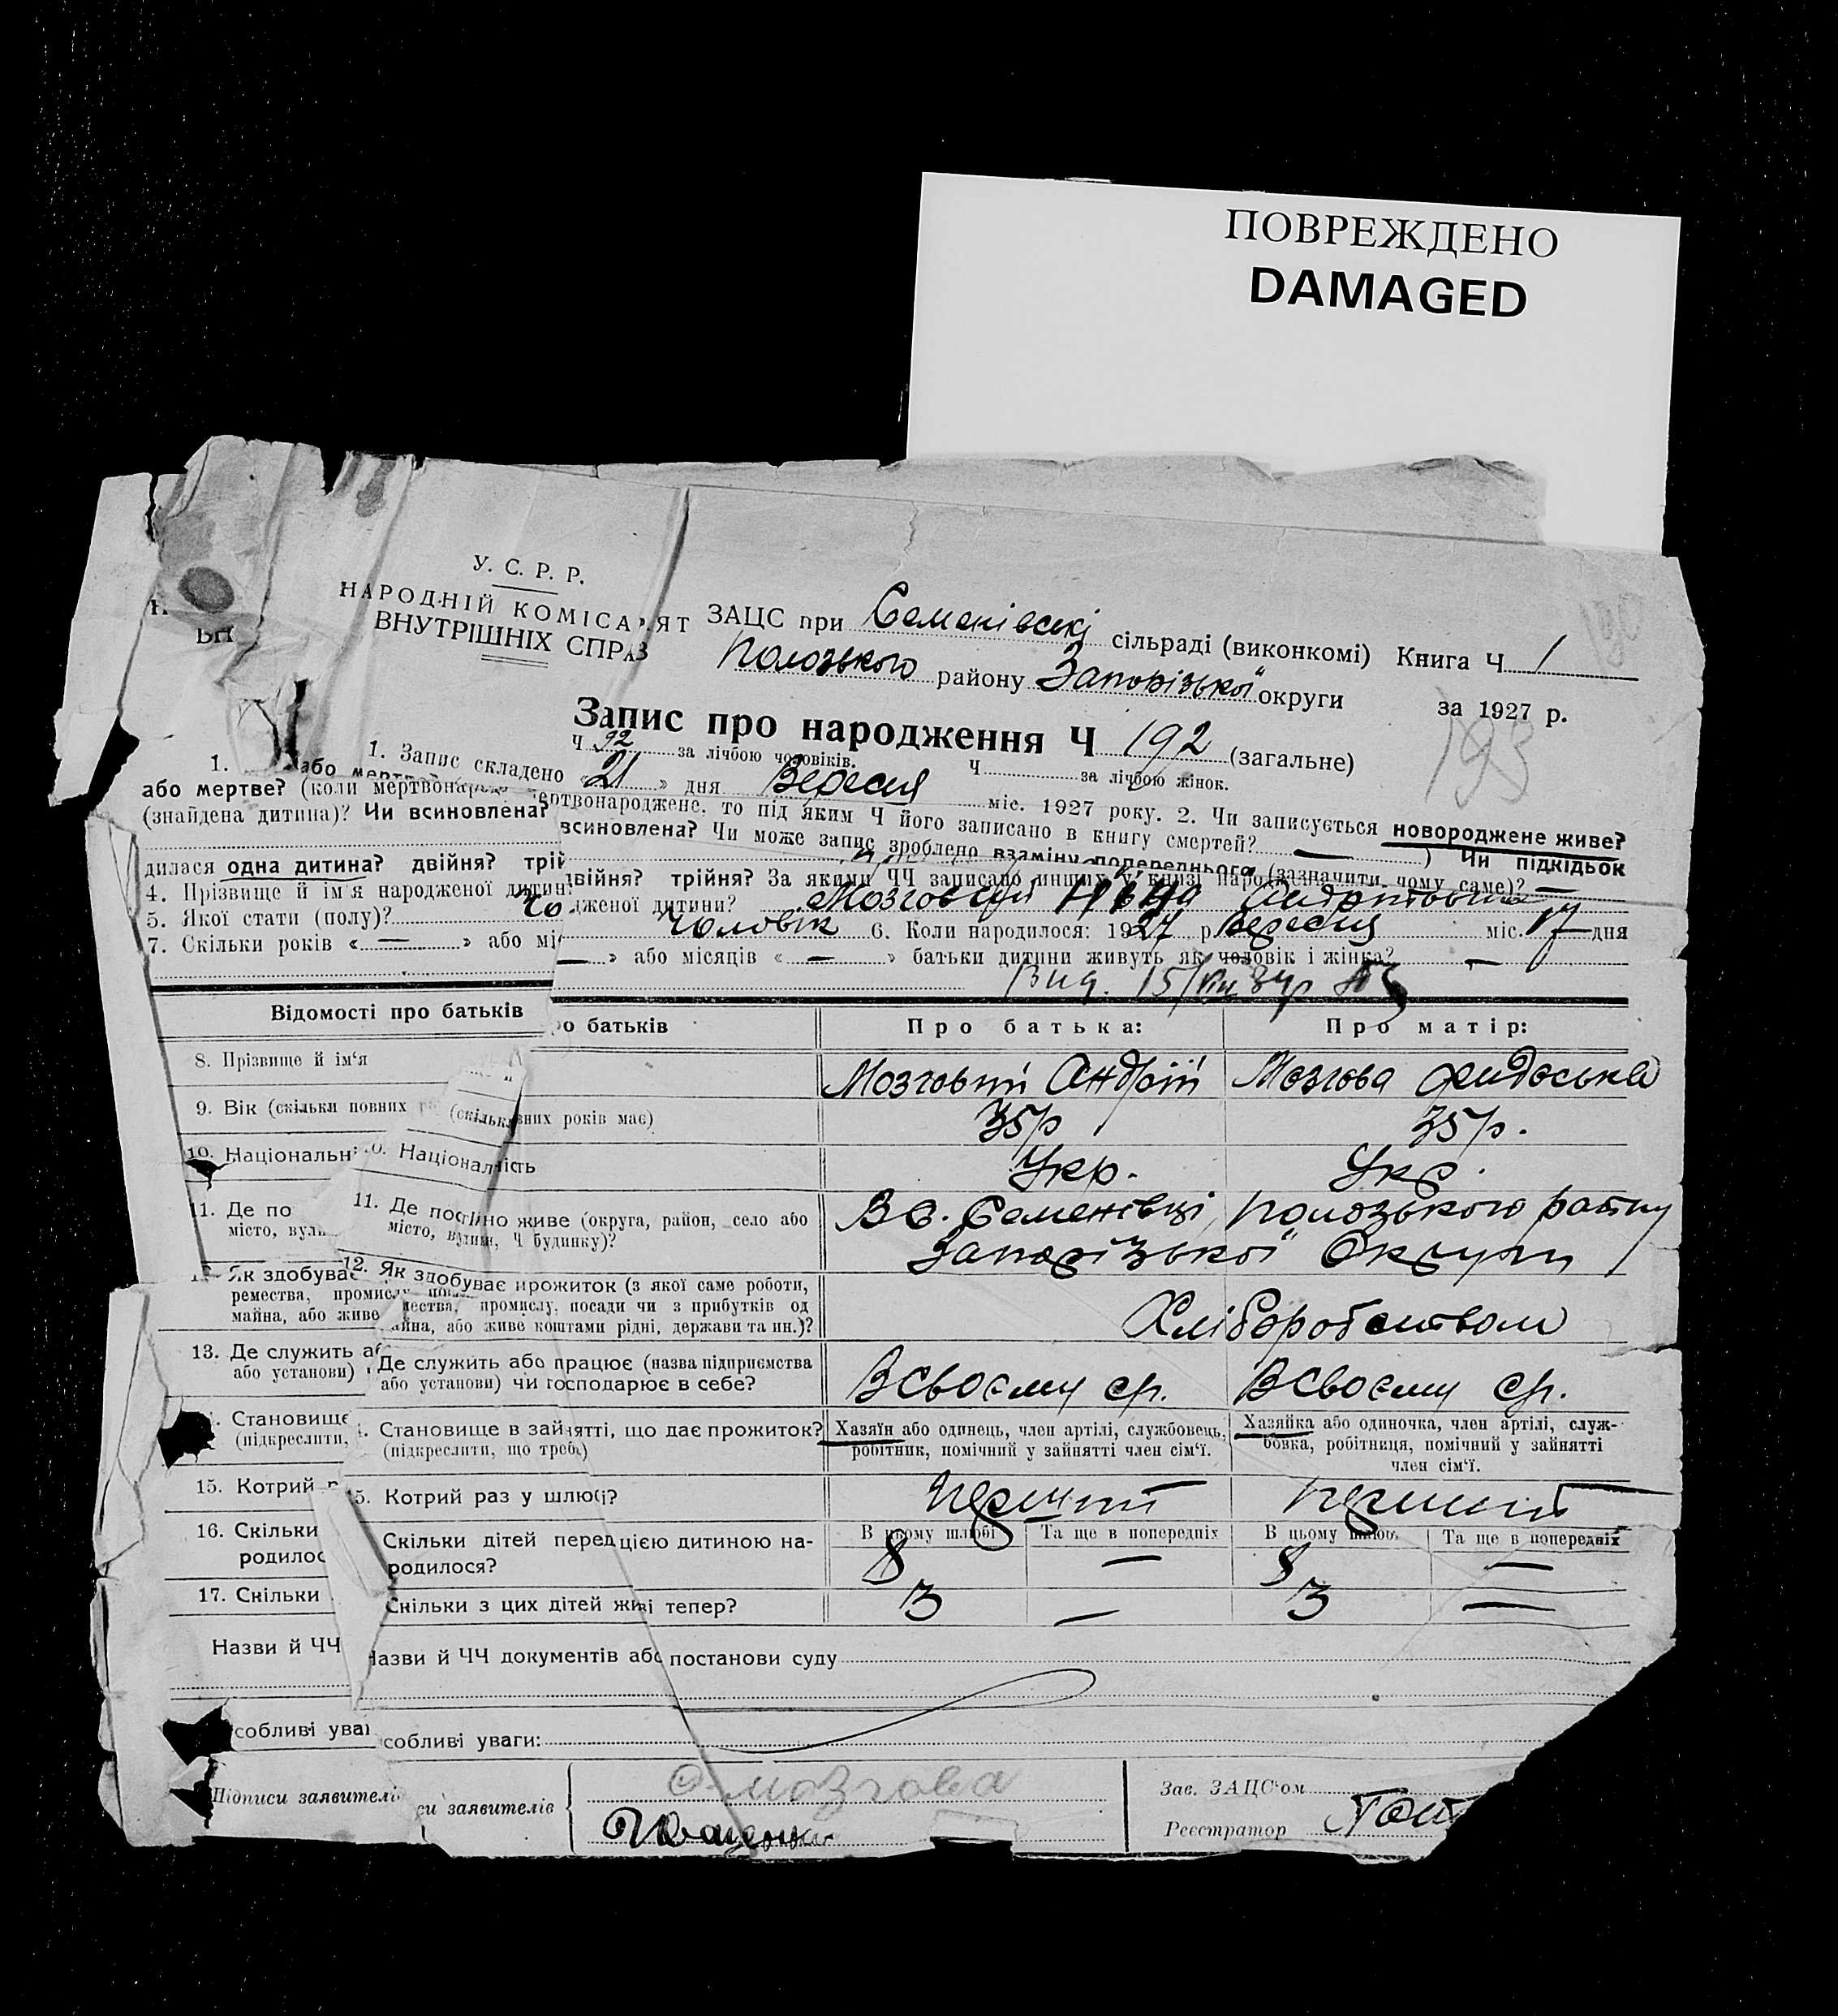 ПОВРЕЖДЕНО
DAMAGED
У. С. Р. Р.
НАРОДНІЙ КОМІСАРІЯТ
ВНУТРІШНІХ СПРАВ
ЗАЦС при Семенівскі сільраді (виконкомі) Книга Ч 1
Полозького району Запорізької округи за 1927 р.
193
Запис про народження Ч 192 (загальне)
Ч 92 за лічбою чоловіків. Ч за лічбою жінок.
1. Запис складено «21» дня Вересня міс. 1927 року. 2. Чи записується новороджене живе?
або мертве? (коли мертвонароджене, то під яким Ч його записано в книгу смертей? — ) Чи підкідьок
(знайдена дитина)? Чи всиновлена? Чи може запис зроблено взаміну попереднього (зазначити чому саме)? —
дилася одна дитина? двійня? трійня? За якими ЧЧ записано инших у книзі народжень
4. Прізвище й ім'я народженої дитини? Мозговий
5. Якої стати (полу)? Чоловік 6. Коли народилося: 1927 р Вересня міс. 17 дня
7. Скільки років «—» або місяців «—» батьки дитини живуть як чоловік і жінка? —
Вид. 15/VIII 34р
Відомості про батьків
Про батька:
Про матір:
8. Прізвище й ім'я
Мозговий Андрій
Мозгова Фидоська
9. Вік (скільки повних років має)
35р
35р.
10. Національність
Укр.
Укр.
11. Де постійно живе (округа, район, село або
місто, вулиця, Ч будинку)?
В с. Семенівці Полозького району
Запорізької Округи
12. Як здобуває прожиток (з якої саме роботи,
ремества, промислу, посади чи з прибутків од
майна, або живе коштами рідні, держави та ин.)?
Хліборобством
13. Де служить або працює (назва підприємства
або установи) чи господарює в себе?
В своєму ср.
В своєму ср.
Становище в зайнятті, що дає прожиток?
(підкреслити, що треба)
Хазяїн або одинець, член артілі, службовець,
робітник, помічний у зайнятті член сім'ї.
Хазяйка або одиночка, член артілі, служ-
бовка, робітниця, помічний у зайнятті
член сім'ї.
15. Котрий раз у шлюбі?
перший
перший
16. Скільки дітей перед цією дитиною на-
родилося?
В цьому шлюбі
Та ще в попередніх
В цьому шлюбі
Та ще в попередніх
8 — 8 —
17. Скільки з цих дітей живі тепер?
3 — 3 —
Назви й ЧЧ документів або постанови суду
собливі уваги:
Підписи заявителів
Ф Мозгова
Зав. ЗАЦС'ом
Реєстратор